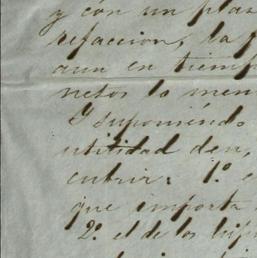 y con un plaz
refaccion, la p
aun en tiemp
netos lo men
Y suponiendo
utilidad den,
cubrir: 1º e
que importa
2º el de los